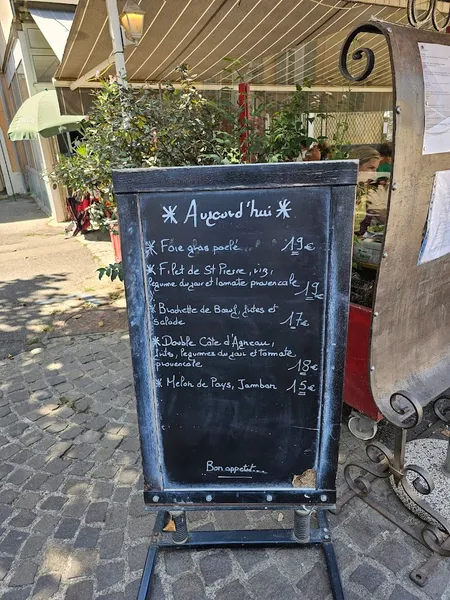 * Aujourd'hui *
* Foie gras poêlé... 19€
* Filet de St Pierre, riz,
légume du jour et tomate provençale 19€
* Brochette de Bœuf, frites et
salade 17€
* Double Côte d'Agneau,
frites, légumes du jour et tomate
provençale 18€
* Melon de Pays, Jambon 15€
Bon appetit...